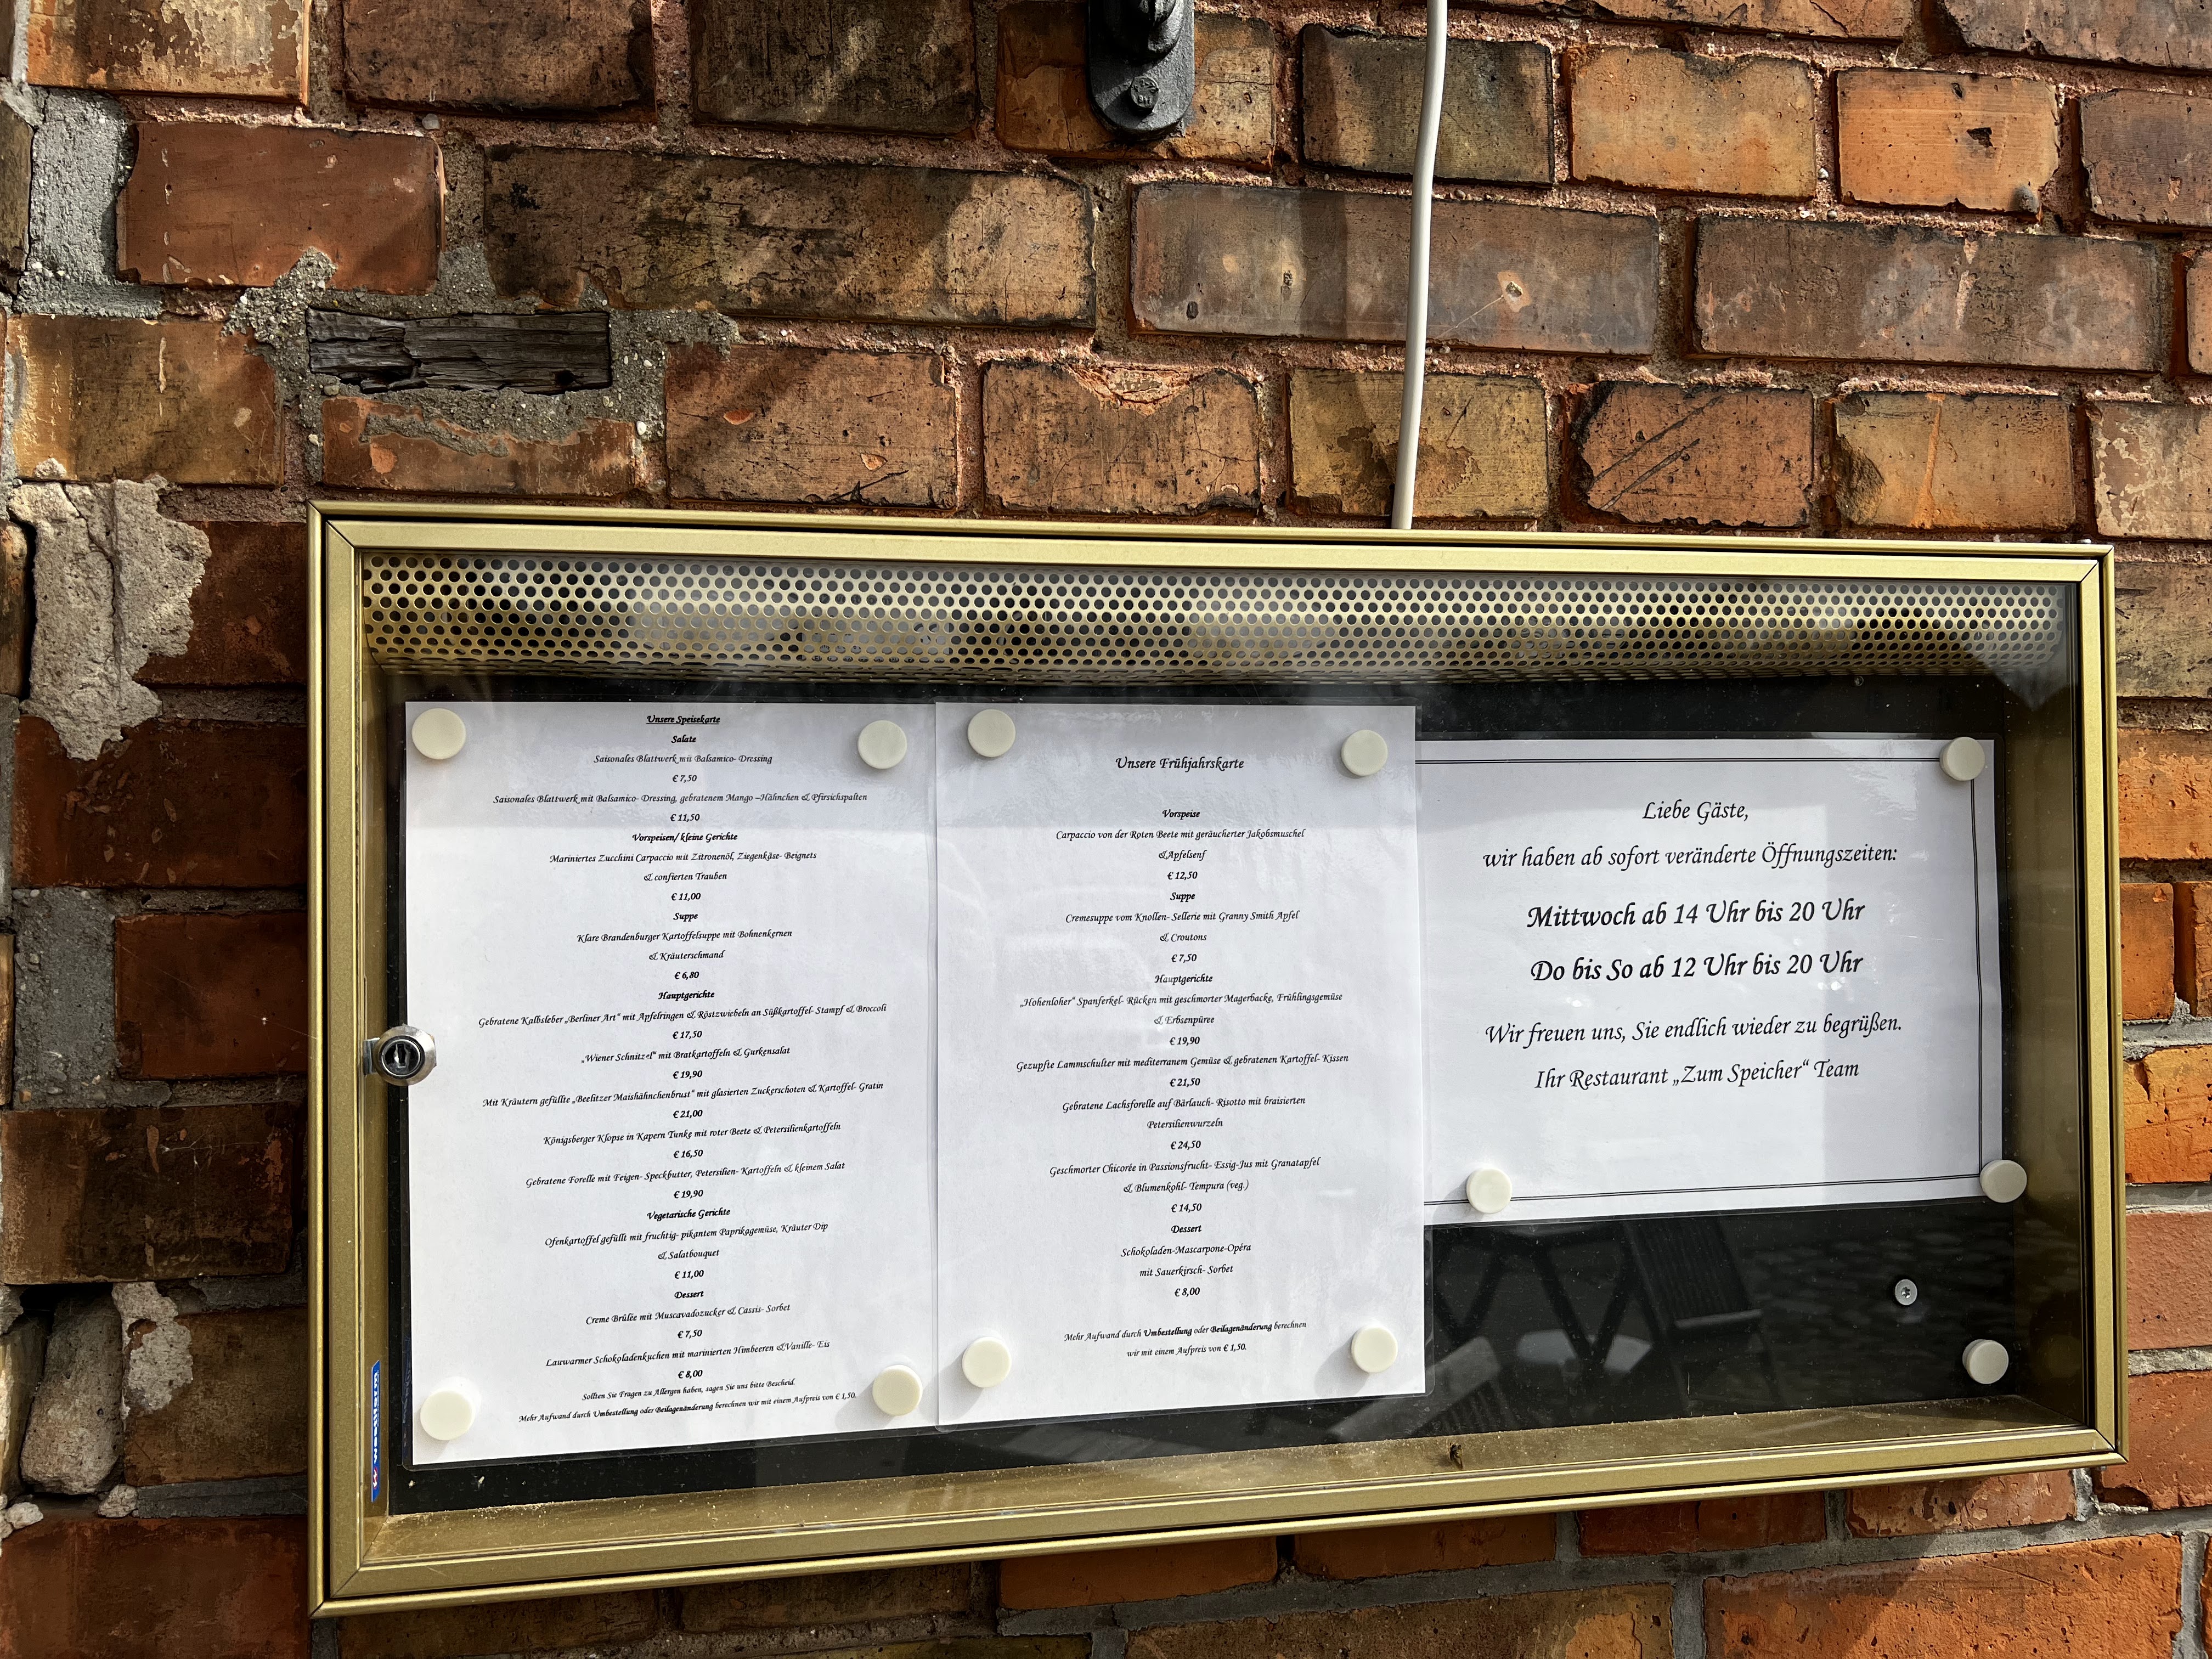 Unsere Speisekarte
Salate
Saisonales Blattwerk mit Balsamico- Dressing
€ 7,50
Saisonales Blattwerk mit Balsamico- Dressing, gebratenem Mango –Hähnchen & Pfirsichspalten
€ 11,50
Vorspeisen/ kleine Gerichte
Mariniertes Zucchini Carpaccio mit Zitronenöl, Ziegenkäse- Beignets
& confierten Trauben
€ 11,00
Suppe
Klare Brandenburger Kartoffelsuppe mit Bohnenkernen
& Kräuterschmand
€ 6,80
Hauptgerichte
Gebratene Kalbsleber „Berliner Art“ mit Apfelringen & Röstzwiebeln an Süßkartoffel- Stampf & Broccoli
€ 17,50
„Wiener Schnitzel“ mit Bratkartoffeln & Gurkensalat
€ 19,90
Mit Kräutern gefüllte „Beelitzer Maishähnchenbrust“ mit glasierten Zuckerschoten & Kartoffel- Gratin
€ 21,00
Königsberger Klopse in Kapern Tunke mit roter Beete & Petersilienkartoffeln
€ 16,50
Gebratene Forelle mit Feigen- Speckbutter, Petersilien- Kartoffeln & kleinem Salat
€ 19,90
Vegetarische Gerichte
Ofenkartoffel gefüllt mit fruchtig- pikantem Paprikagemüse, Kräuter Dip
& Salatbouquet
€ 11,00
Dessert
Creme Brûlée mit Muscavadozucker & Cassis- Sorbet
€ 7,50
Lauwarmer Schokoladenkuchen mit marinierten Himbeeren &Vanille- Eis
€ 8,00
Sollten Sie Fragen zu Allergen haben, sagen Sie uns bitte Bescheid.
Mehr Aufwand durch Umbestellung oder Beilagenänderung berechnen wir mit einem Aufpreis von € 1,50.
Unsere Frühjahrskarte
Vorspeise
Carpaccio von der Roten Beete mit geräucherter Jakobsmuschel
&Apfelsenf
€ 12,50
Suppe
Cremesuppe vom Knollen- Sellerie mit Granny Smith Apfel
& Croutons
€ 7,50
Hauptgerichte
„Hohenloher“ Spanferkel- Rücken mit geschmorter Magerbacke, Frühlingsgemüse
& Erbsenpüree
€ 19,90
Gezupfte Lammschulter mit mediterranem Gemüse & gebratenen Kartoffel- Kissen
€ 21,50
Gebratene Lachsforelle auf Bärlauch- Risotto mit braisierten
Petersilienwurzeln
€ 24,50
Geschmorter Chicorée in Passionsfrucht- Essig-Jus mit Granatapfel
& Blumenkohl- Tempura (veg.)
€ 14,50
Dessert
Schokoladen-Mascarpone-Opéra
mit Sauerkirsch- Sorbet
€ 8,00
Mehr Aufwand durch Umbestellung oder Beilagenänderung berechnen
wir mit einem Aufpreis von € 1,50.
Liebe Gäste,
wir haben ab sofort veränderte Öffnungszeiten:
Mittwoch ab 14 Uhr bis 20 Uhr
Do bis So ab 12 Uhr bis 20 Uhr
Wir freuen uns, Sie endlich wieder zu begrüßen.
Ihr Restaurant „Zum Speicher“ Team